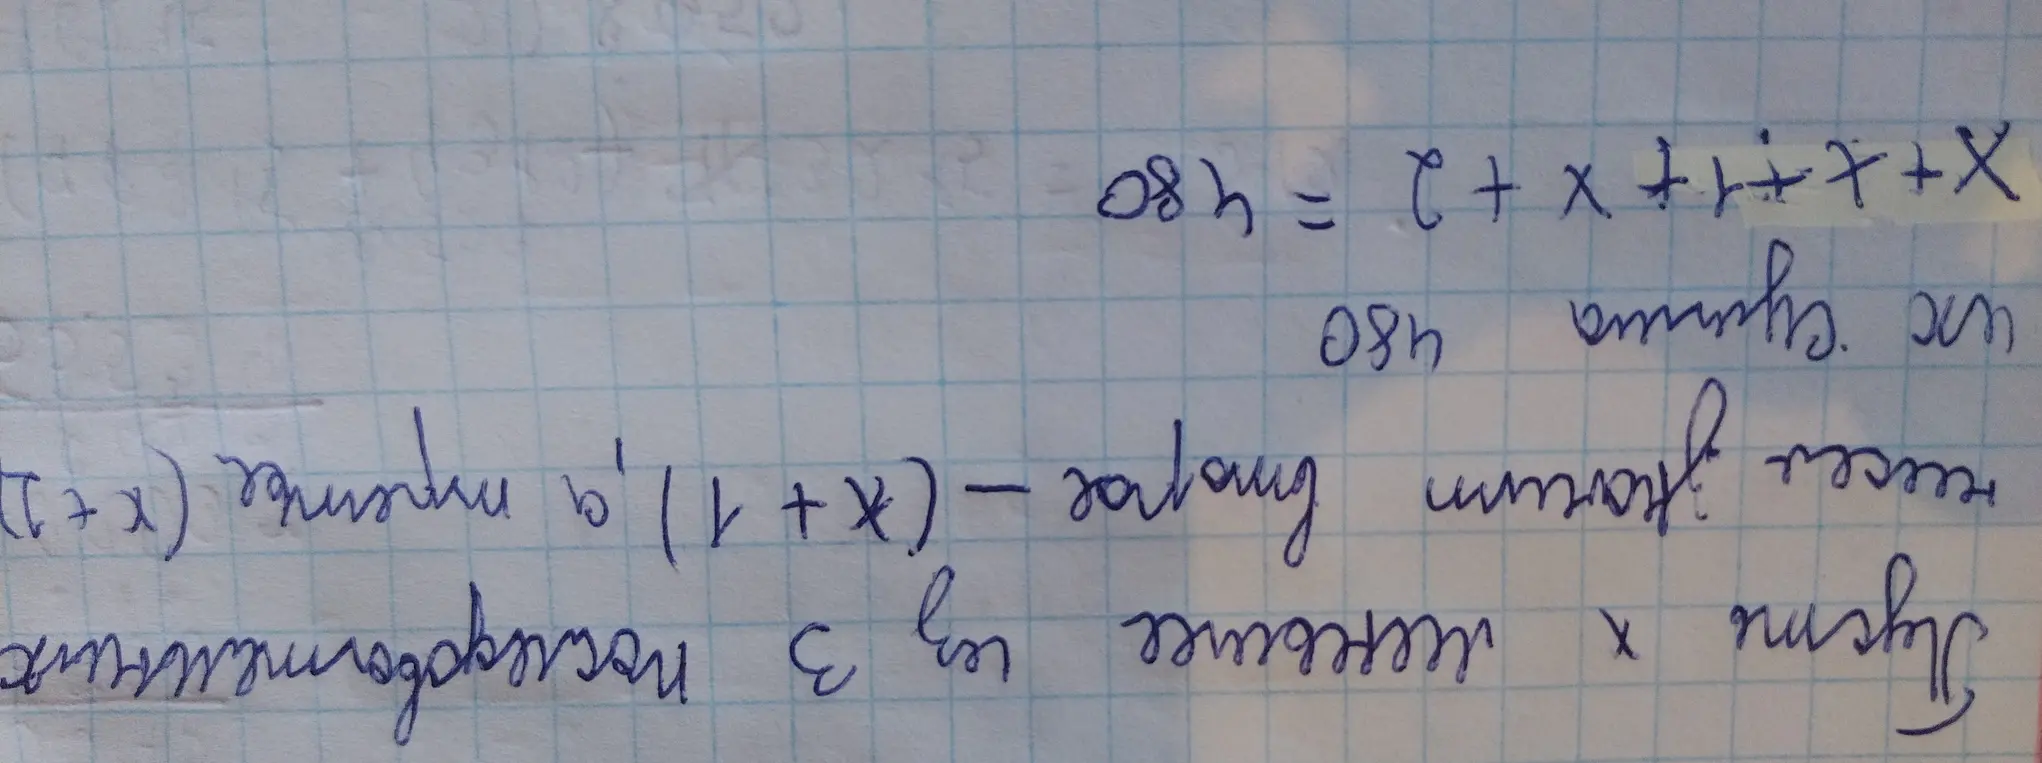 Пусть x меньшее из 3 последовательных
чисел значит второе - (x + 1), а третье (x + 2)
их сумма 480
x + x + 1 + x + 2 = 480